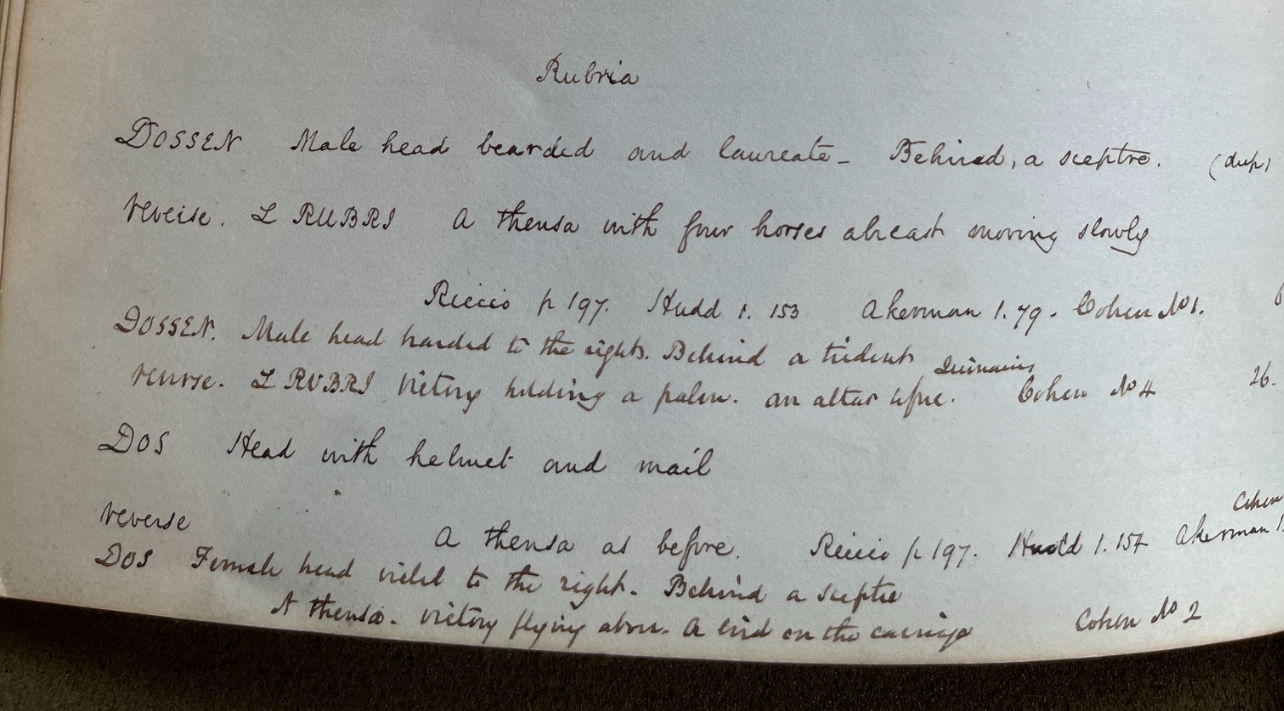 Rubria
DOSSEN Male head bearded and laureate - Behind, a sceptre. (dup)
reverse. L RUBRI A thensa with four horses abreast moving slowly
Riccio p 197. Hudd 1. 153 Akerman 1. 79. Cohen No 1.
DOSSEN. Male head bearded to the right. Behind a trident Quinarius
reverse. L RVBRI Victory holding a palm. an altar Cohen No 4 26.
DOS Head with helmet and mail
reverse A thensa as before. Riccio p 197. 1. 157 Akerman 1. Cohen
DOS Female head veiled to the right. Behind a sceptre
A thensa. Victory flying above. A bird on the carriage Cohen No 2